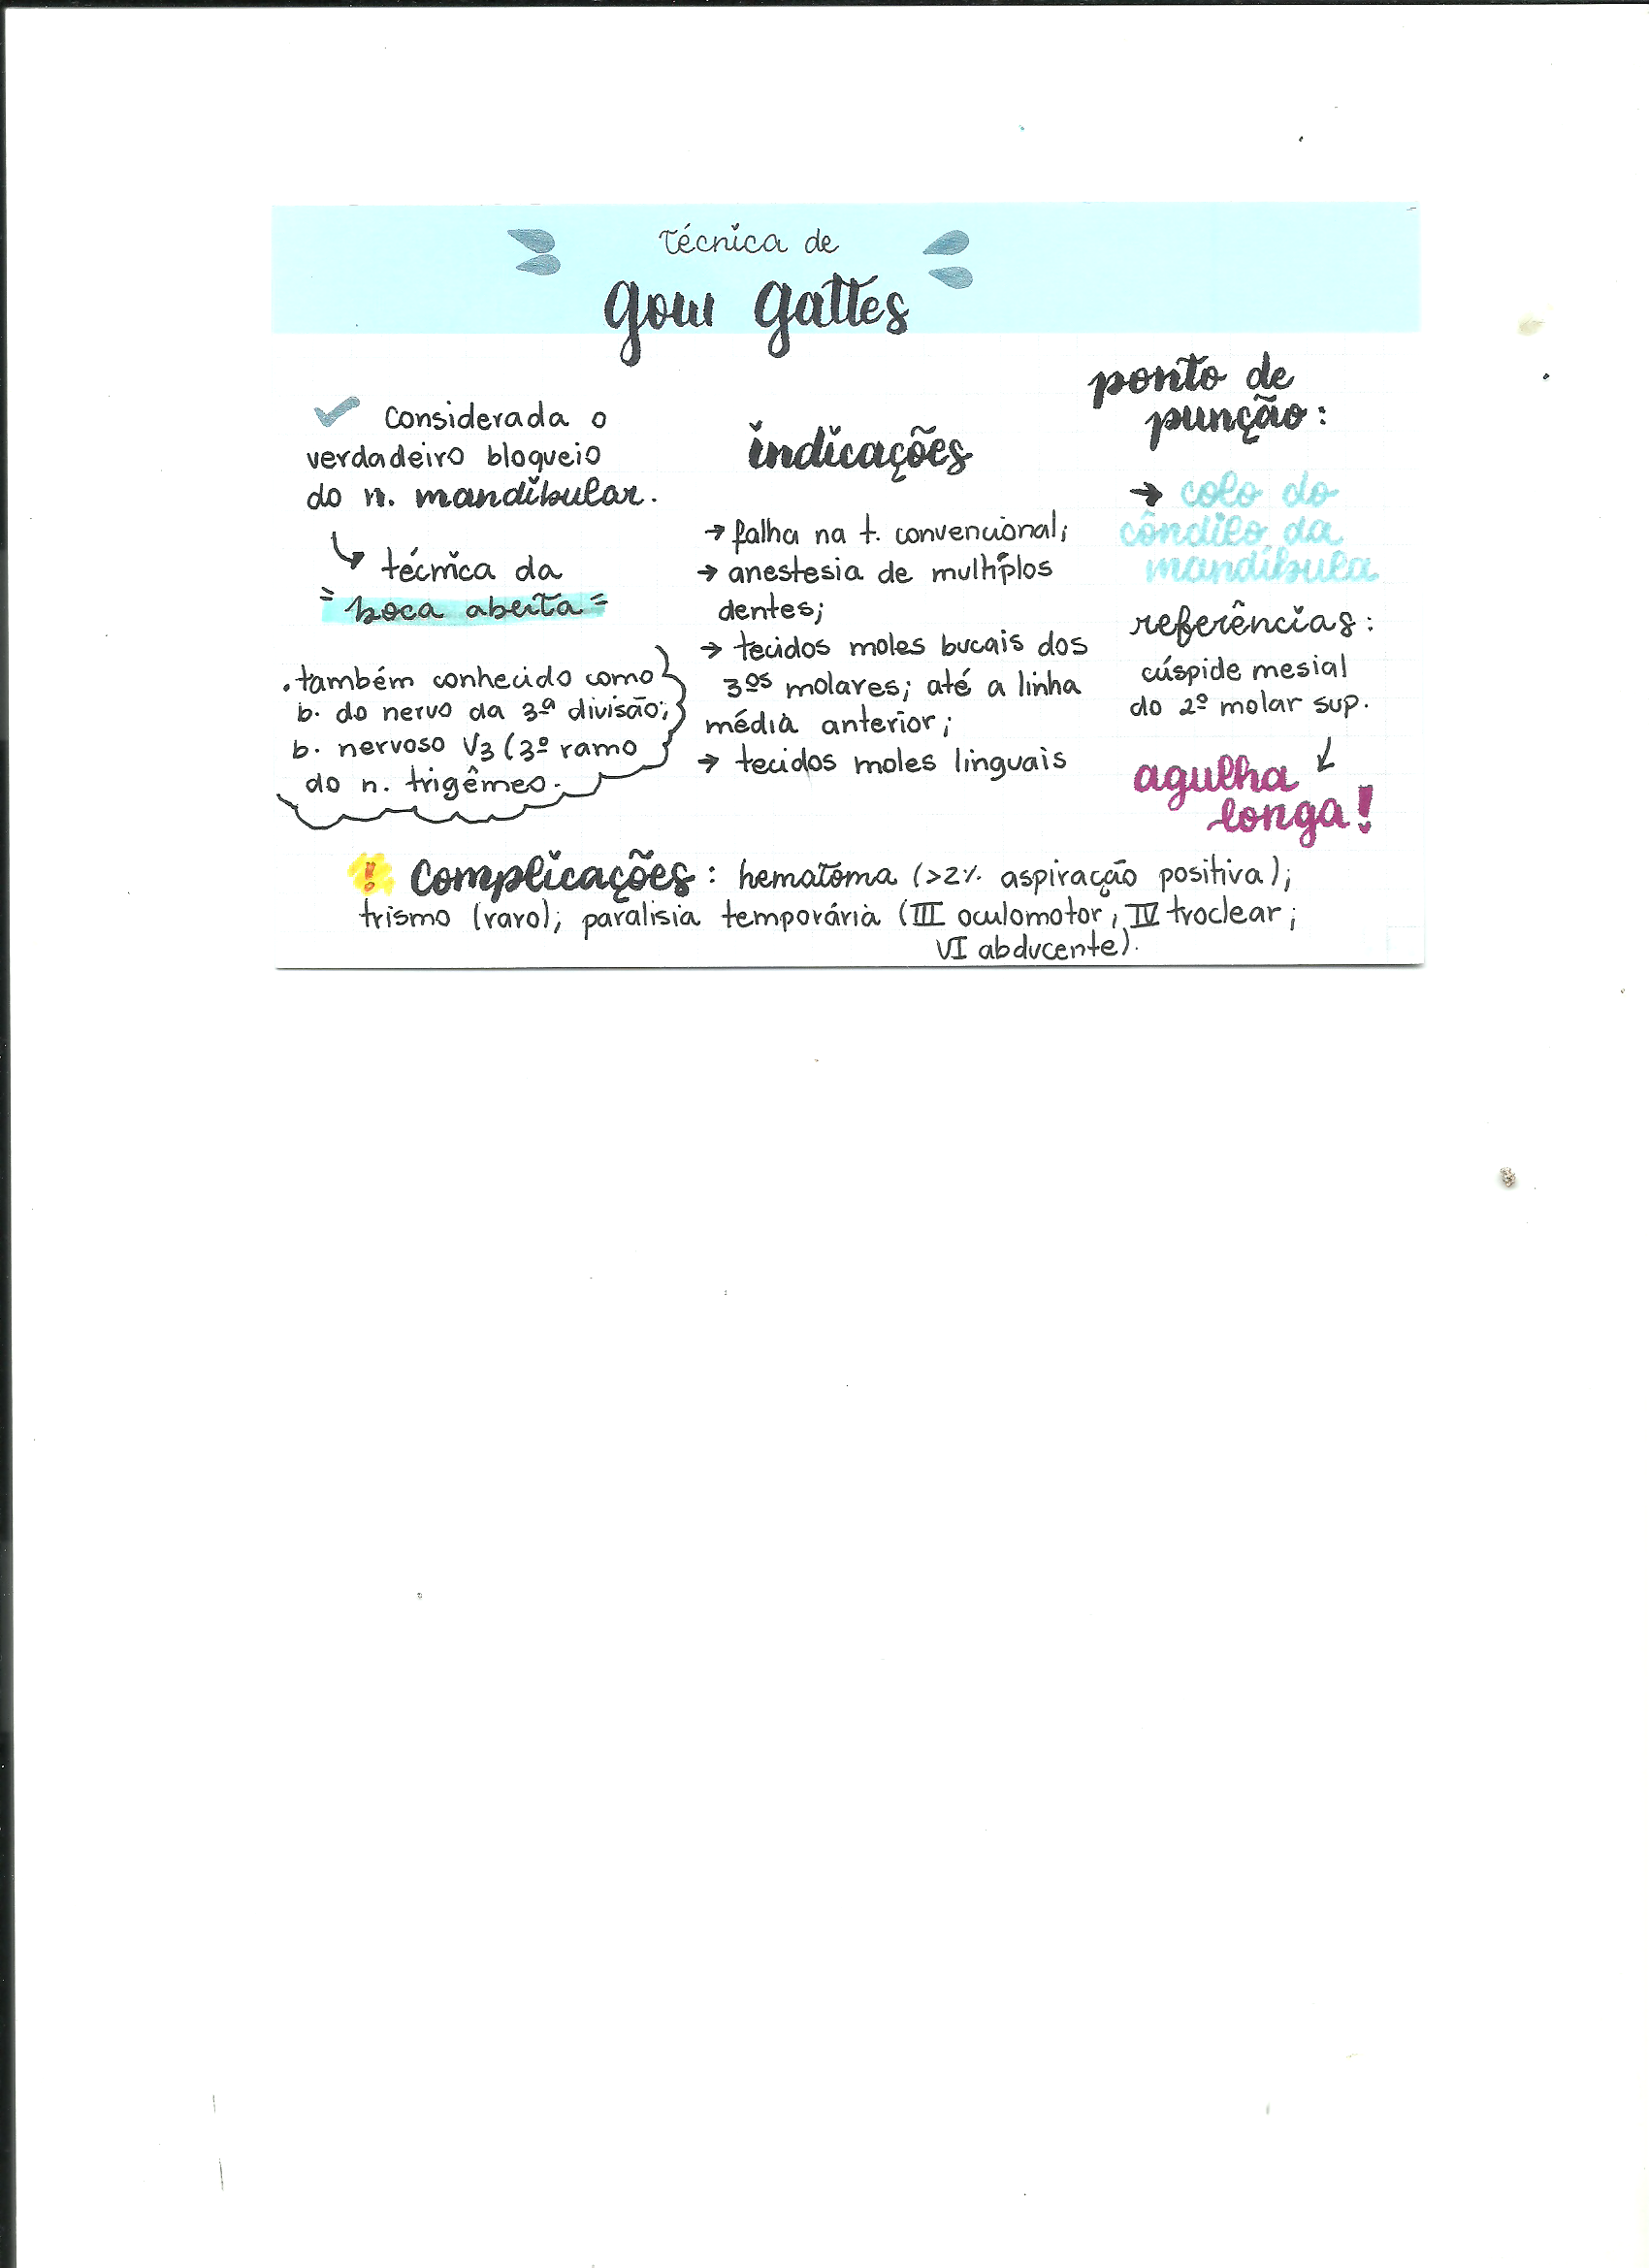 técnica de
gow gattes
✓ Considerada o
verdadeiro bloqueio
do n. mandibular.
↳ técnica da
"boca aberta"
. também conhecido como
b. do nervo da 3ª divisão;
b. nervoso V3 (3º ramo
do n. trigêmeo.
indicações
→ falha na t. convencional;
→ anestesia de multíplos
dentes;
→ tecidos moles bucais dos
3ºs molares; até a linha
média anterior;
→ tecidos moles linguais
ponto de
punção:
→ colo do
côndilo da
mandíbula
referências:
cúspide mesial
do 2º molar sup.
↓
agulha
longa!
! Complicações: hematoma (>2% aspiração positiva);
trismo (raro); paralisia temporária (III oculomotor, IV troclear;
VI abducente).